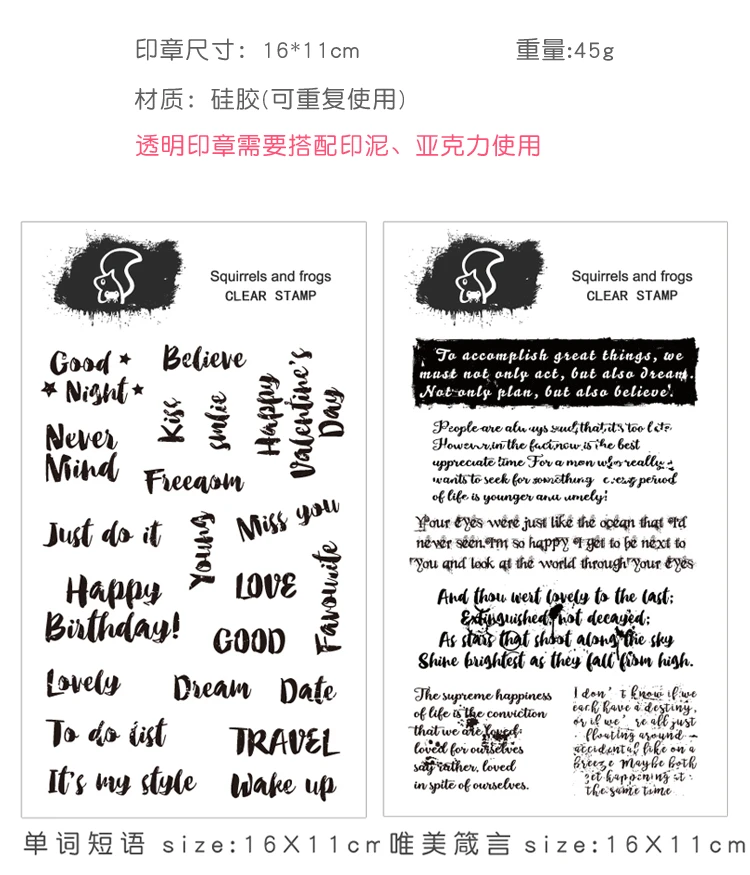 印章尺寸：16*11cm 重量:45g
材质：硅胶(可重复使用)
透明印章需要搭配印泥、亚克力使用
Squirrels and frogs
CLEAR STAMP
Good
Night
Believe
Kiss
smlie
Happy
Valentine's
Day
Never
Mind
Freedom
Just do it
Young
Miss you
Happy
Birthday!
LOVE
Favourite
GOOD
Lovely
Dream
Date
To do list
TRAVEL
It's my style
Wake up
Squirrels and frogs
CLEAR STAMP
To accomplish great things, we
must not only act, but also dream.
Not only plan, but also believe.
People are always said, that it's too late
However, in the fact, now is the best
appreciate time For a man who really
wants to seek for something every period
of life is younger and timely!
Your Eyes were just like the ocean that I'd
never seen.I'm so happy I get to be next to
You and look at the world through Your Eyes
And thou wert lovely to the last;
Extinguished, not decayed;
As stars that shoot along the sky
Shine brightest as they fall from high.
The supreme happiness
of life is the conviction
that we are loved;
loved for ourselves
say rather, loved
in spite of ourselves.
I don't know if we
each have a destiny,
or if we're all just
floating around
accidental like on a
Breeze Maybe both
get happening at
the same time
单词短语 size:16X11cm
唯美箴言 size:16X11cm